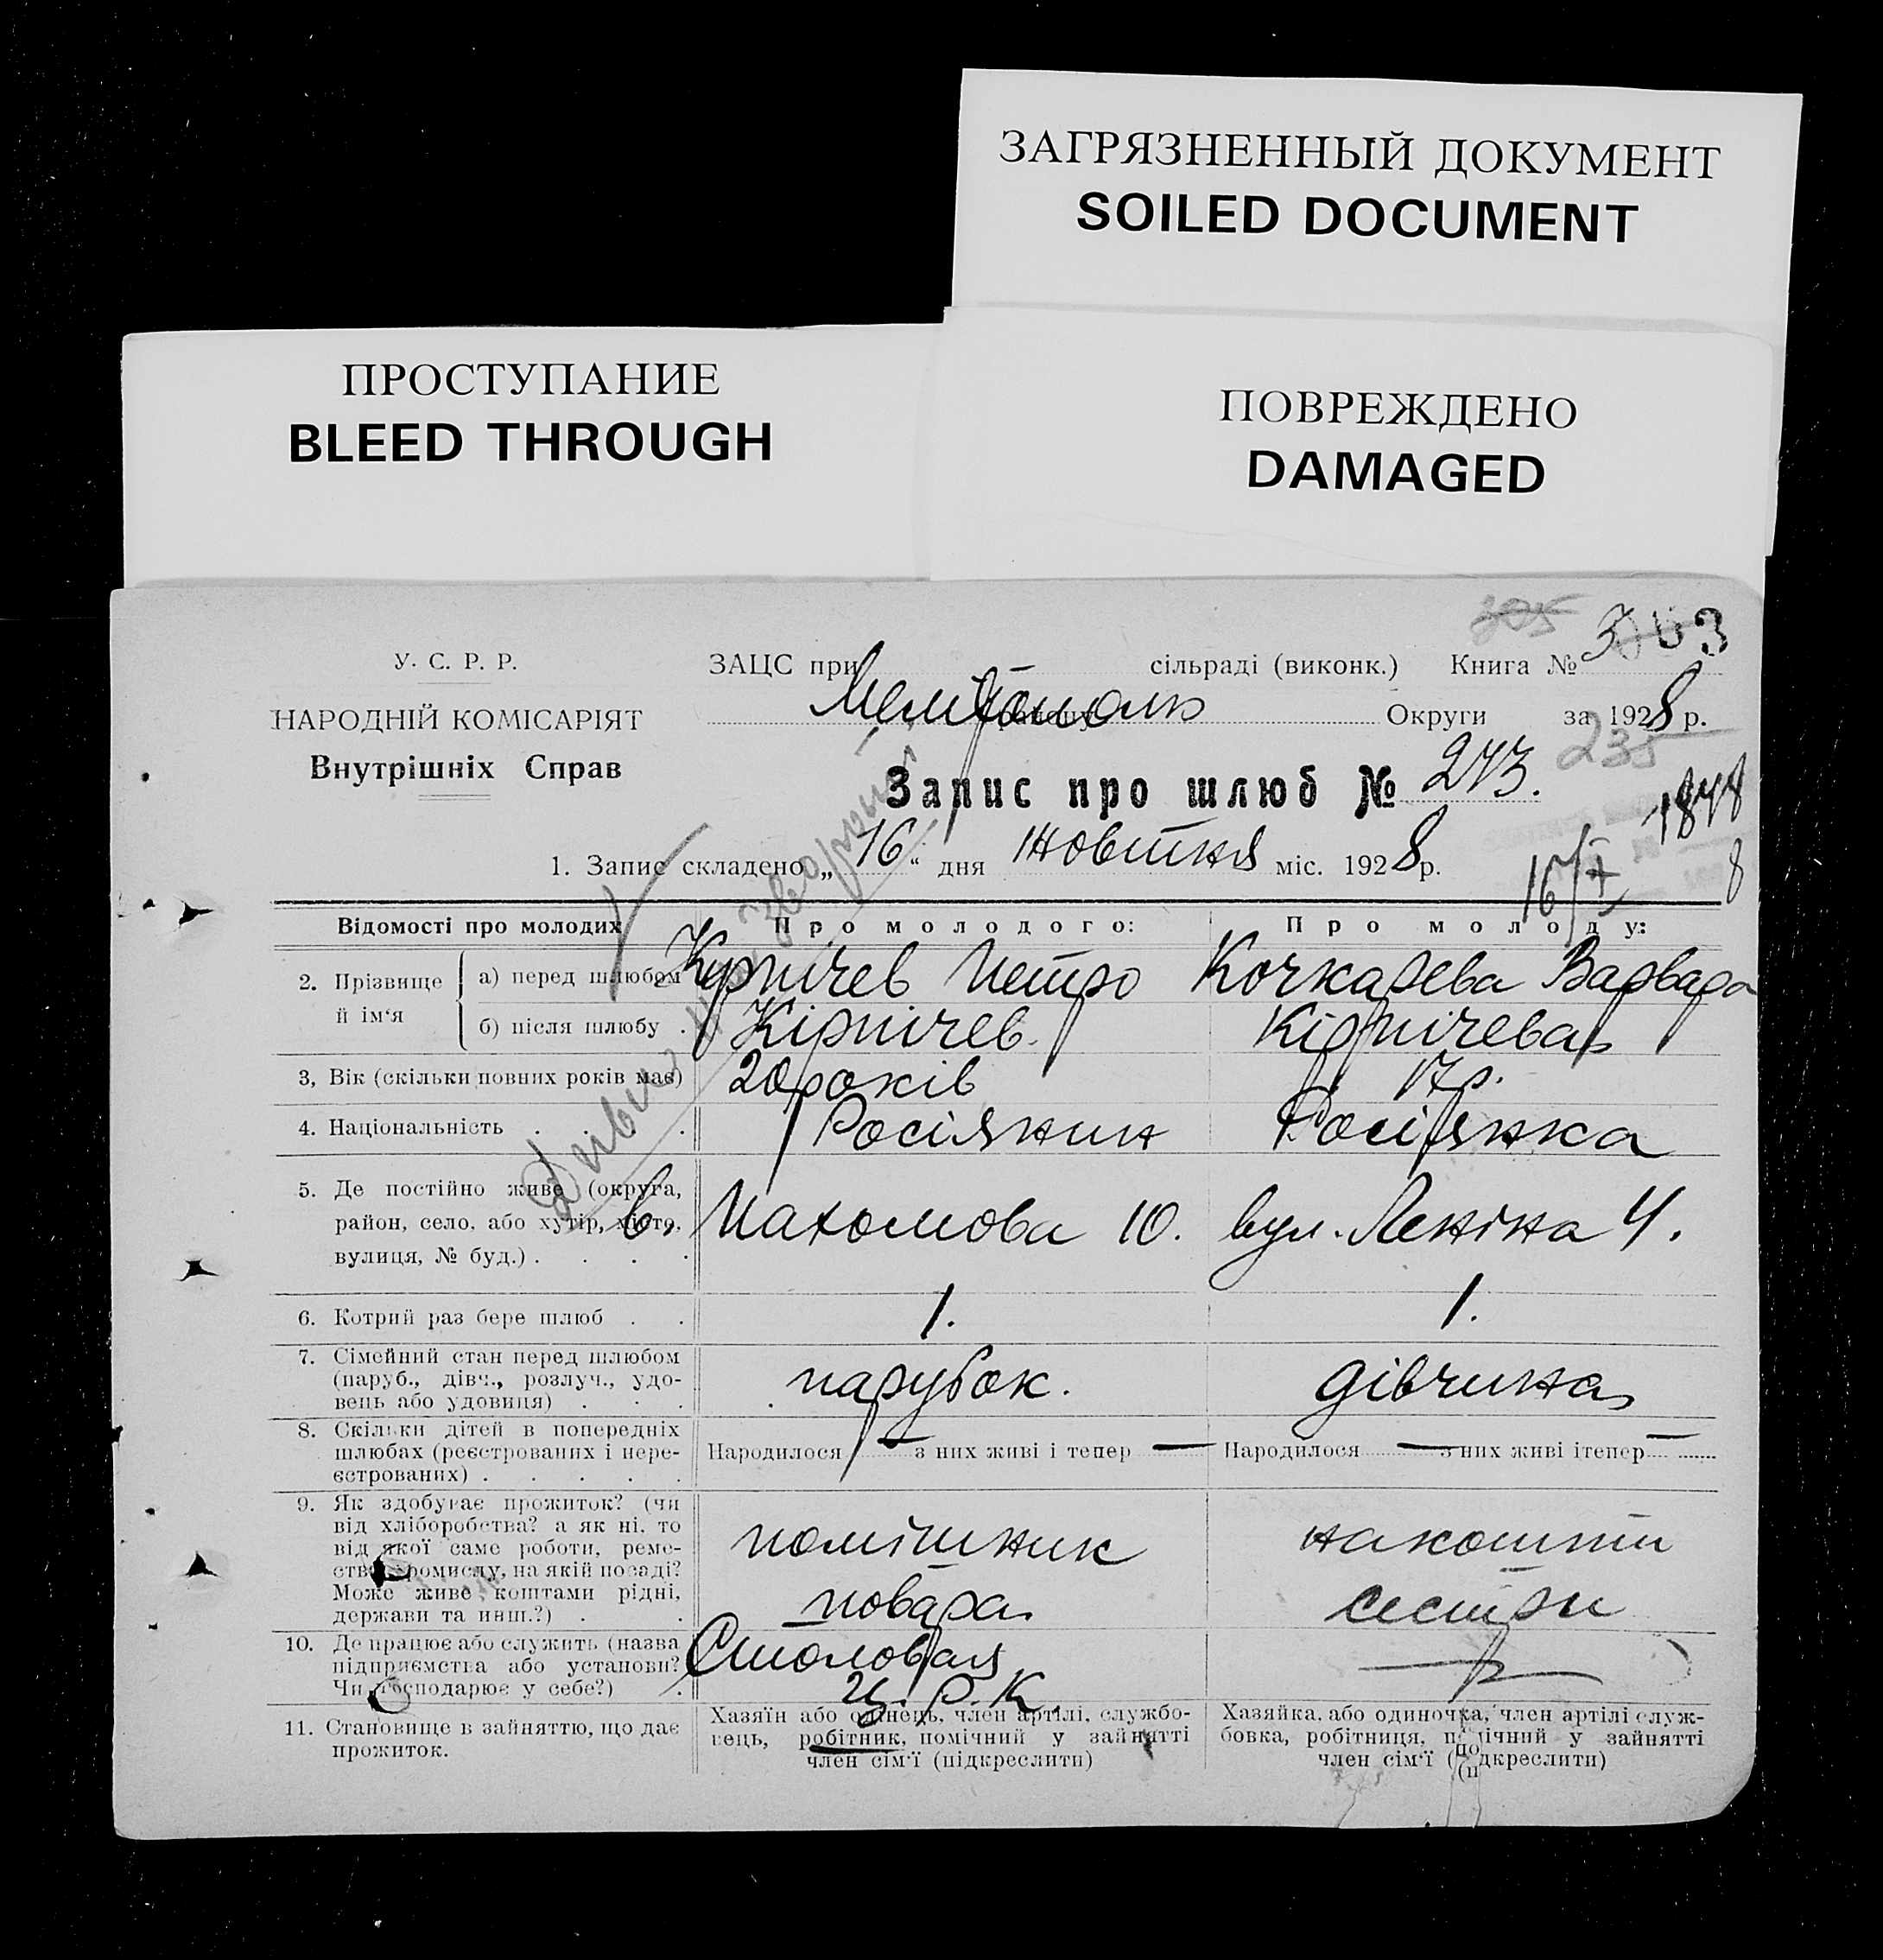 ЗАГРЯЗНЕННЫЙ ДОКУМЕНТ
SOILED DOCUMENT
ПРОСТУПАНИЕ
BLEED THROUGH
ПОВРЕЖДЕНО
DAMAGED
305
303
У. С. Р. Р.
НАРОДНІЙ КОМІСАРІЯТ
Внутрішніх Справ
ЗАЦС при сільраді (виконк.) Книга №
Мелітополь Округи за 1928 р.
235
Запис про шлюб № 243.
1848
8
1. Запис складено „16“ дня Жовтня міс. 1928 р.
16/X
Відомості про молодих
Про молодого:
Про молоду:
2. Прізвище й ім‘я
а) перед шлюбом Кірпічев Петро Кочкарева Варвара
б) після шлюбу . Кірпічев. Кірпічева
3, Вік (скільки повних років має) 20 років 17 р.
4. Національність . . . Росіянин Росіянка
5. Де постійно живе (округа,
район, село, або хутір, місто,
вулиця, № буд.) . . . .
в. Пахомова 10. вул. Леніна 4.
6. Котрий раз бере шлюб . . 1. 1.
7. Сімейний стан перед шлюбом
(паруб., дівч., розлуч., удо-
вець або удовиця) . . .
парубок. дівчина
8. Скільки дітей в попередніх
шлюбах (реєстрованих і нере-
єстрованих) . . . . .
Народилося — з них живі і тепер — Народилося — з них живі ітепер —
9. Як здобуває прожиток? (чи
від хліборобства? а як ні, то
від якої саме роботи, реме-
ства, промислу, на якій посаді?
Може живе коштами рідні,
держави та инш.?) . .
помішник
повара
на кошти
сестри
10. Де працює або служить (назва
підприємства або установи?
Чи господарює у себе?) .
Столовая
Ц. Р. К.
—
11. Становище в зайняттю, що дає
прожиток.
Хазяїн або одинець, член артілі, службо-
вець, робітник, помічний у зайнятті
член сім‘ї (підкреслити)
Хазяйка, або одиночка, член артілі служ-
бовка, робітниця, помічний у зайнятті
член сім‘ї (підкреслити)